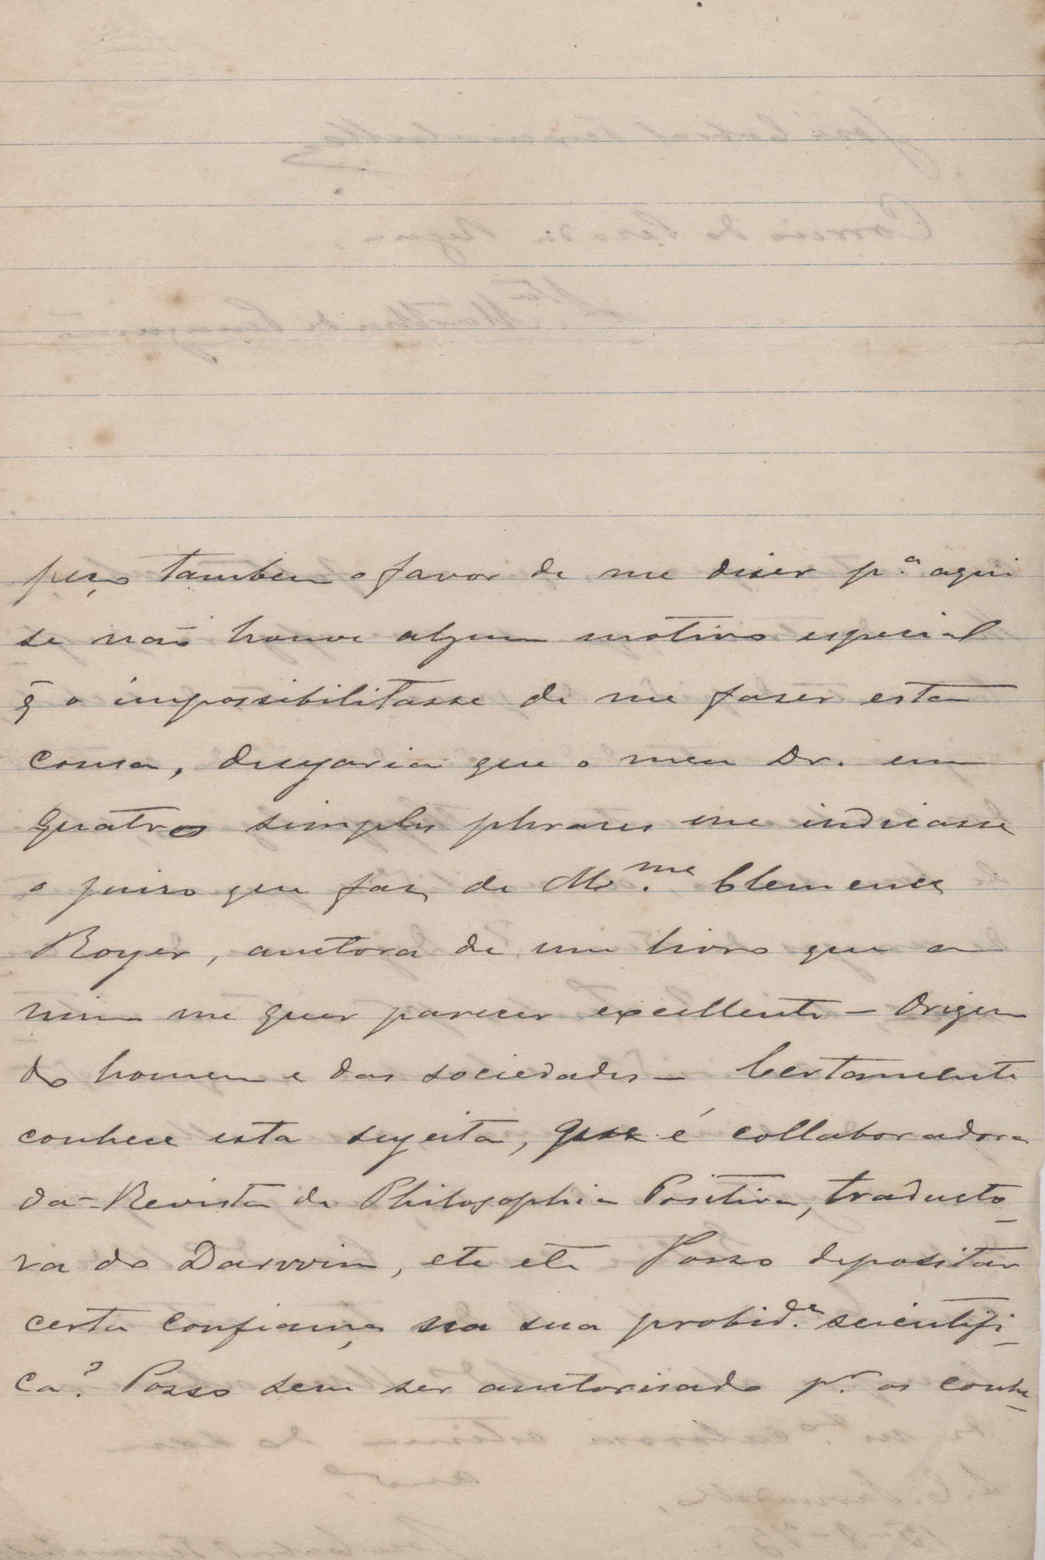 peço tambem o favor de me diser p.ª aqui
se não houve algum motivo especial
q̃ o impossibilitasse de me faser esta
cousa, desejaria que o meu Dr. em
quatro simples phrases me indicasse
o juiso que faz de M.me Clemence
Royer, auctora de um livro que a
mim me quer parecer excellente – Origem
do homem e das sociedades – Certamente
conhece esta sugeita, que é collaboradora
da – Revista de Philosophia Positiva, traducto-
ra do Darwin, etc etc Posso depositar
certa confiança na sua probid.de scientifi-
ca? Posso sem ser auctorisado p.r os conhe-